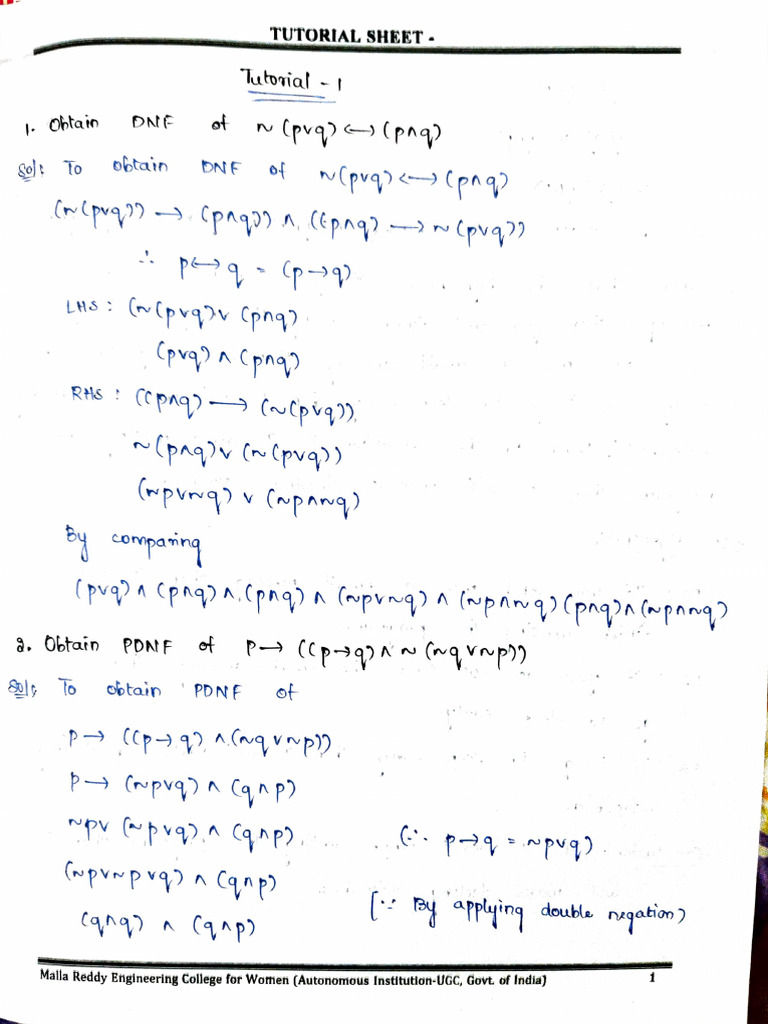 TUTORIAL SHEET -
Tutorial - 1
1. Obtain DNF of ~(p∨q)⟷(p∧q)
Sol: To obtain DNF of ~(p∨q)⟷(p∧q)
(~(p∨q)) → (p∧q)) ∧ ((p∧q) → ~(p∨q))
∴ p⟷q = (p→q)
LHS : (~(p∨q)∨ (p∧q)
(p∨q) ∧ (p∧q)
RHS : ((p∧q) → (~(p∨q))
~(p∧q)∨ (~(p∨q))
(~p∨~q) ∨ (~p∧~q)
By comparing
(p∨q) ∧ (p∧q) ∧ (p∧q) ∧ (~p∨~q) ∧ (~p∧~q) (p∧q)∧(~p∧~q)
2. Obtain PDNF of p→ ((p→q)∧ ~(~q∨~p))
Sol: To obtain PDNF of
p→ ((p→q) ∧(~q∨~p))
p→ (~p∨q) ∧ (q∧p)
~p∨ (~p∨q) ∧ (q∧p) (∵ p→q = ~p∨q)
(~p∨~p∨q) ∧ (q∧p)
(q∧q) ∧ (q∧p) [∵ By applying double negation)
Malla Reddy Engineering College for Women (Autonomous Institution-UGC, Govt. of India) 1